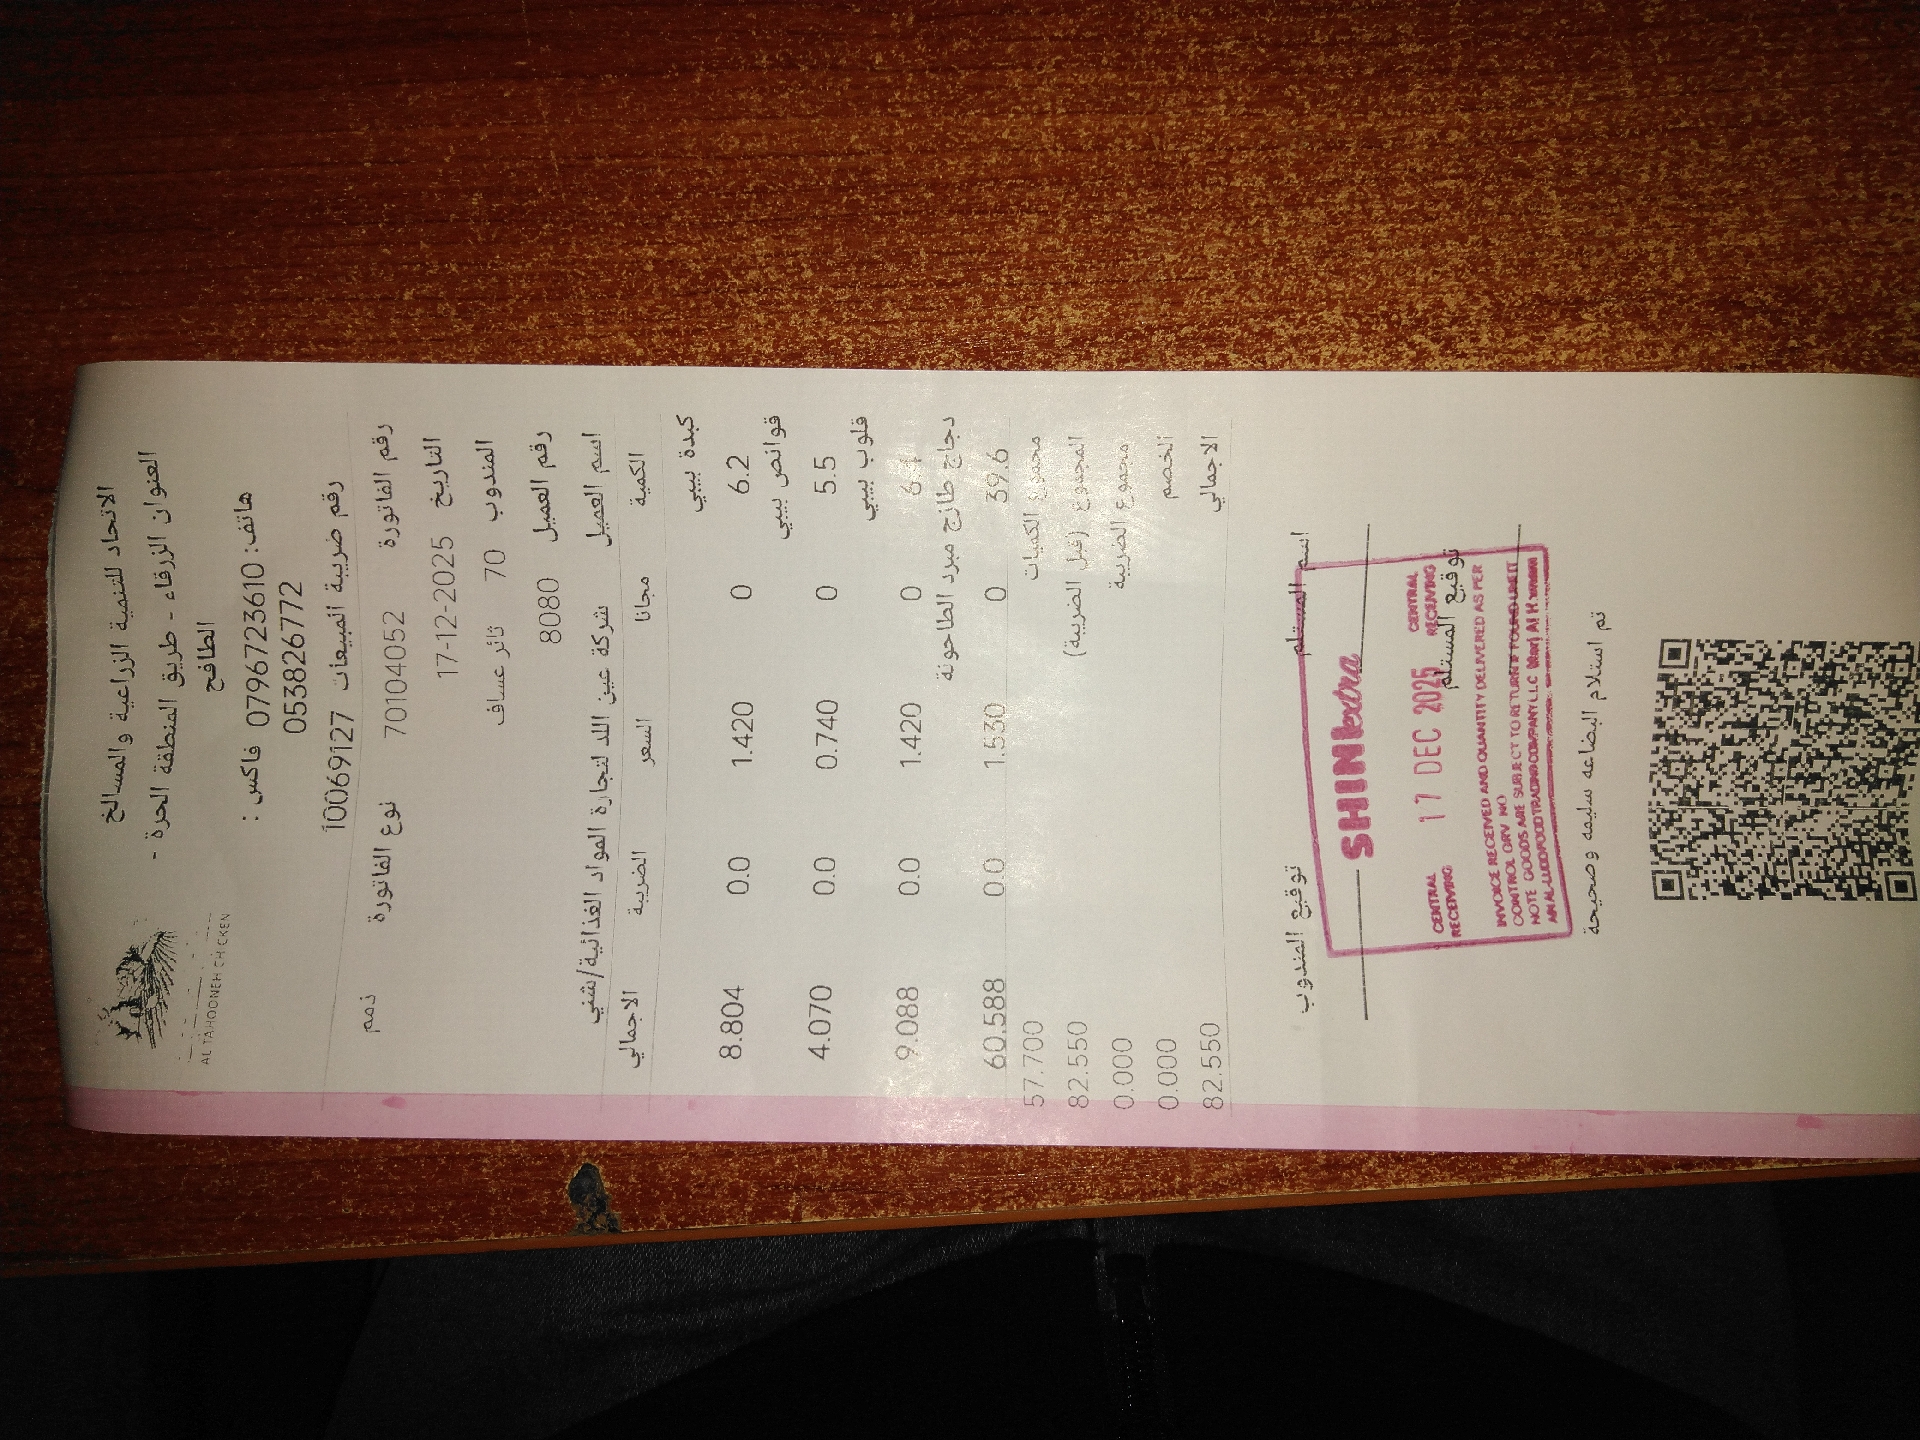 AL TAHOONEH CHICKEN
الاتحاد للتنمية الزراعية والمسالخ
العنوان الزرقاء - طريق المنطقة الحرة -
الطافح
هاتف: 0796723610 فاكس :
053826772
رقم ضريبة المبيعات 10069127
رقم الفاتورة 70104052 نوع الفاتورة ذمم
التاريخ 17-12-2025
المندوب 70 ثائر عساف
رقم العميل 8080
اسم العميل شركة عين اللد لتجارة المواد الغذائية/شني
الكمية مجانا السعر الضريبة الاجمالي
كبدة بيبي
6.2 0 1.420 0.0 8.804
قوانص بيبي
5.5 0 0.740 0.0 4.070
قلوب بيبي
6.4 0 1.420 0.0 9.088
دجاج طازج مبرد الطاحونة
39.6 0 1.530 0.0 60.588
مجموع الكميات 57.700
المجموع (قبل الضريبة) 82.550
مجموع الضريبة 0.000
الخصم 0.000
الاجمالي 82.550
اسم المستلم توقيع المندوب
SHINIextra
توقيع المستلم
CENTRAL RECEIVING 17 DEC 2025 CENTRAL RECEIVING
INVOICE RECEIVED AND QUANTITY DELIVERED AS PER
CONTROL GRV NO
NOTE GOODS ARE SUBJECT TO RETURN IF FOUND UNFIT
AIN AL-LUDD FOOD TRADING COMPANY L.L.C
تم استلام البضاعه سليمه وصحيحة